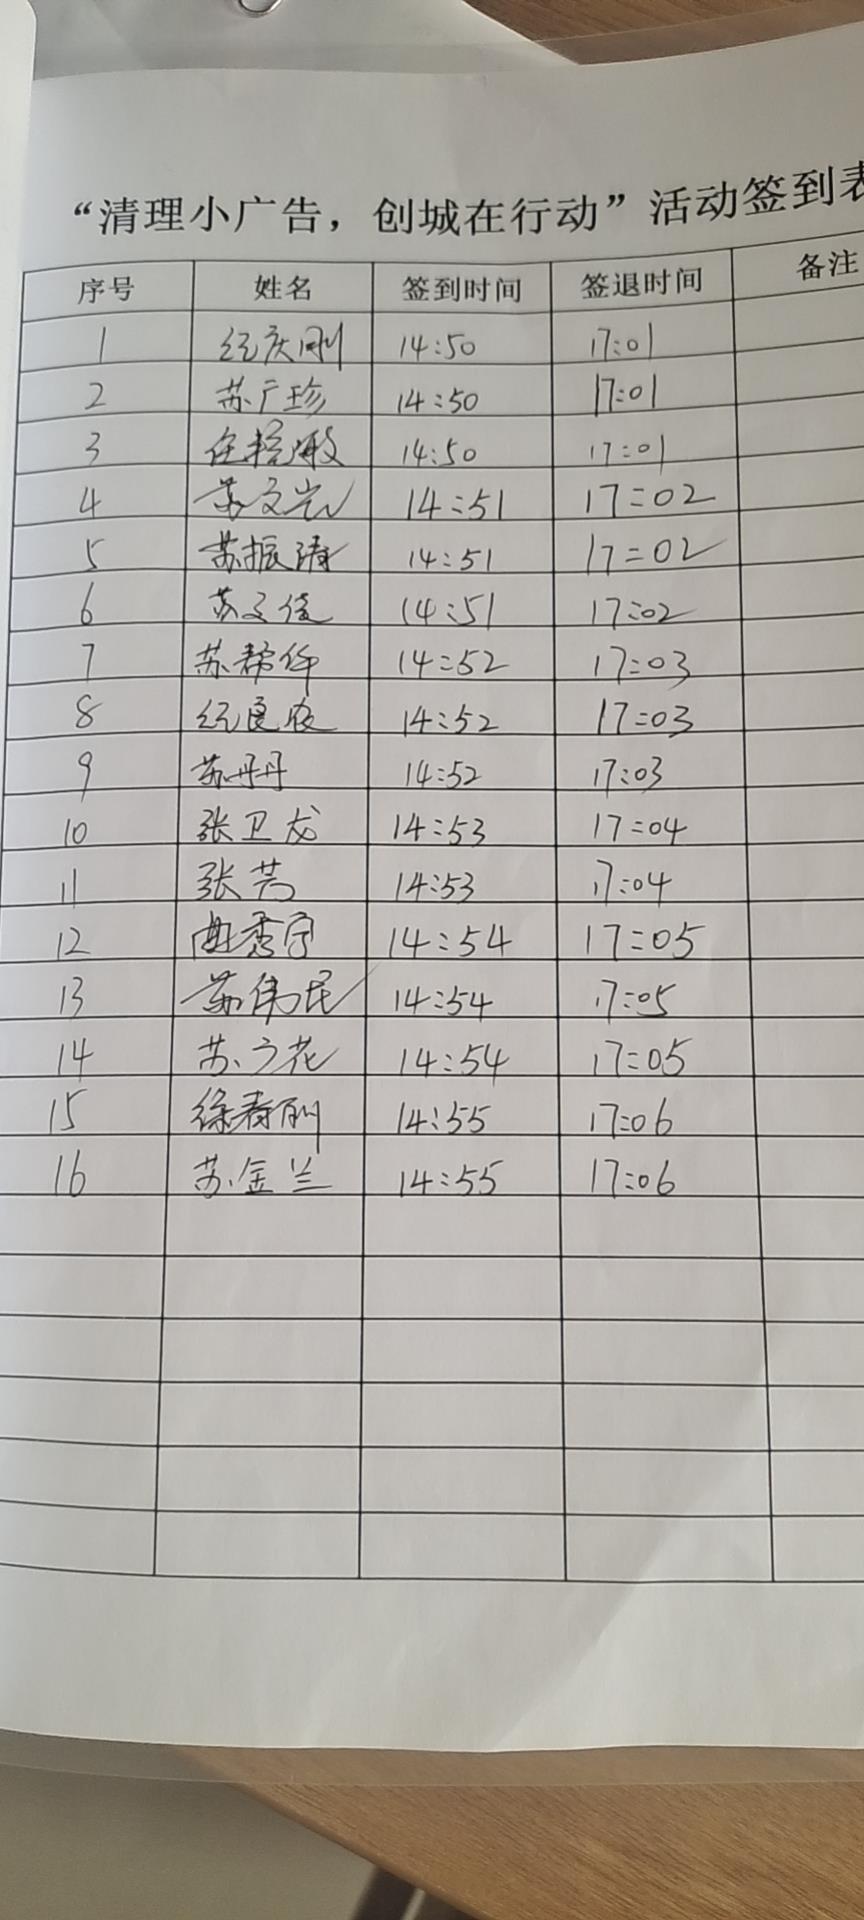 “清理小广告，创城在行动”活动签到表
序号 姓名 签到时间 签退时间 备注
1 纪庆刚 14:50 17:01
2 苏广珍 14:50 17:01
3 14:50 17:01
4 苏文岩 14:51 17:02
5 苏振涛 14:51 17:02
6 苏文俊 14:51 17:02
7 苏希华 14:52 17:03
8 纪良俊 14:52 17:03
9 苏丹丹 14:52 17:03
10 张卫龙 14:53 17:04
11 张芳 14:53 17:04
12 曲秀宁 14:54 17:05
13 苏伟民 14:54 17:05
14 苏立花 14:54 17:05
15 徐春刚 14:55 17:06
16 苏金兰 14:55 17:06